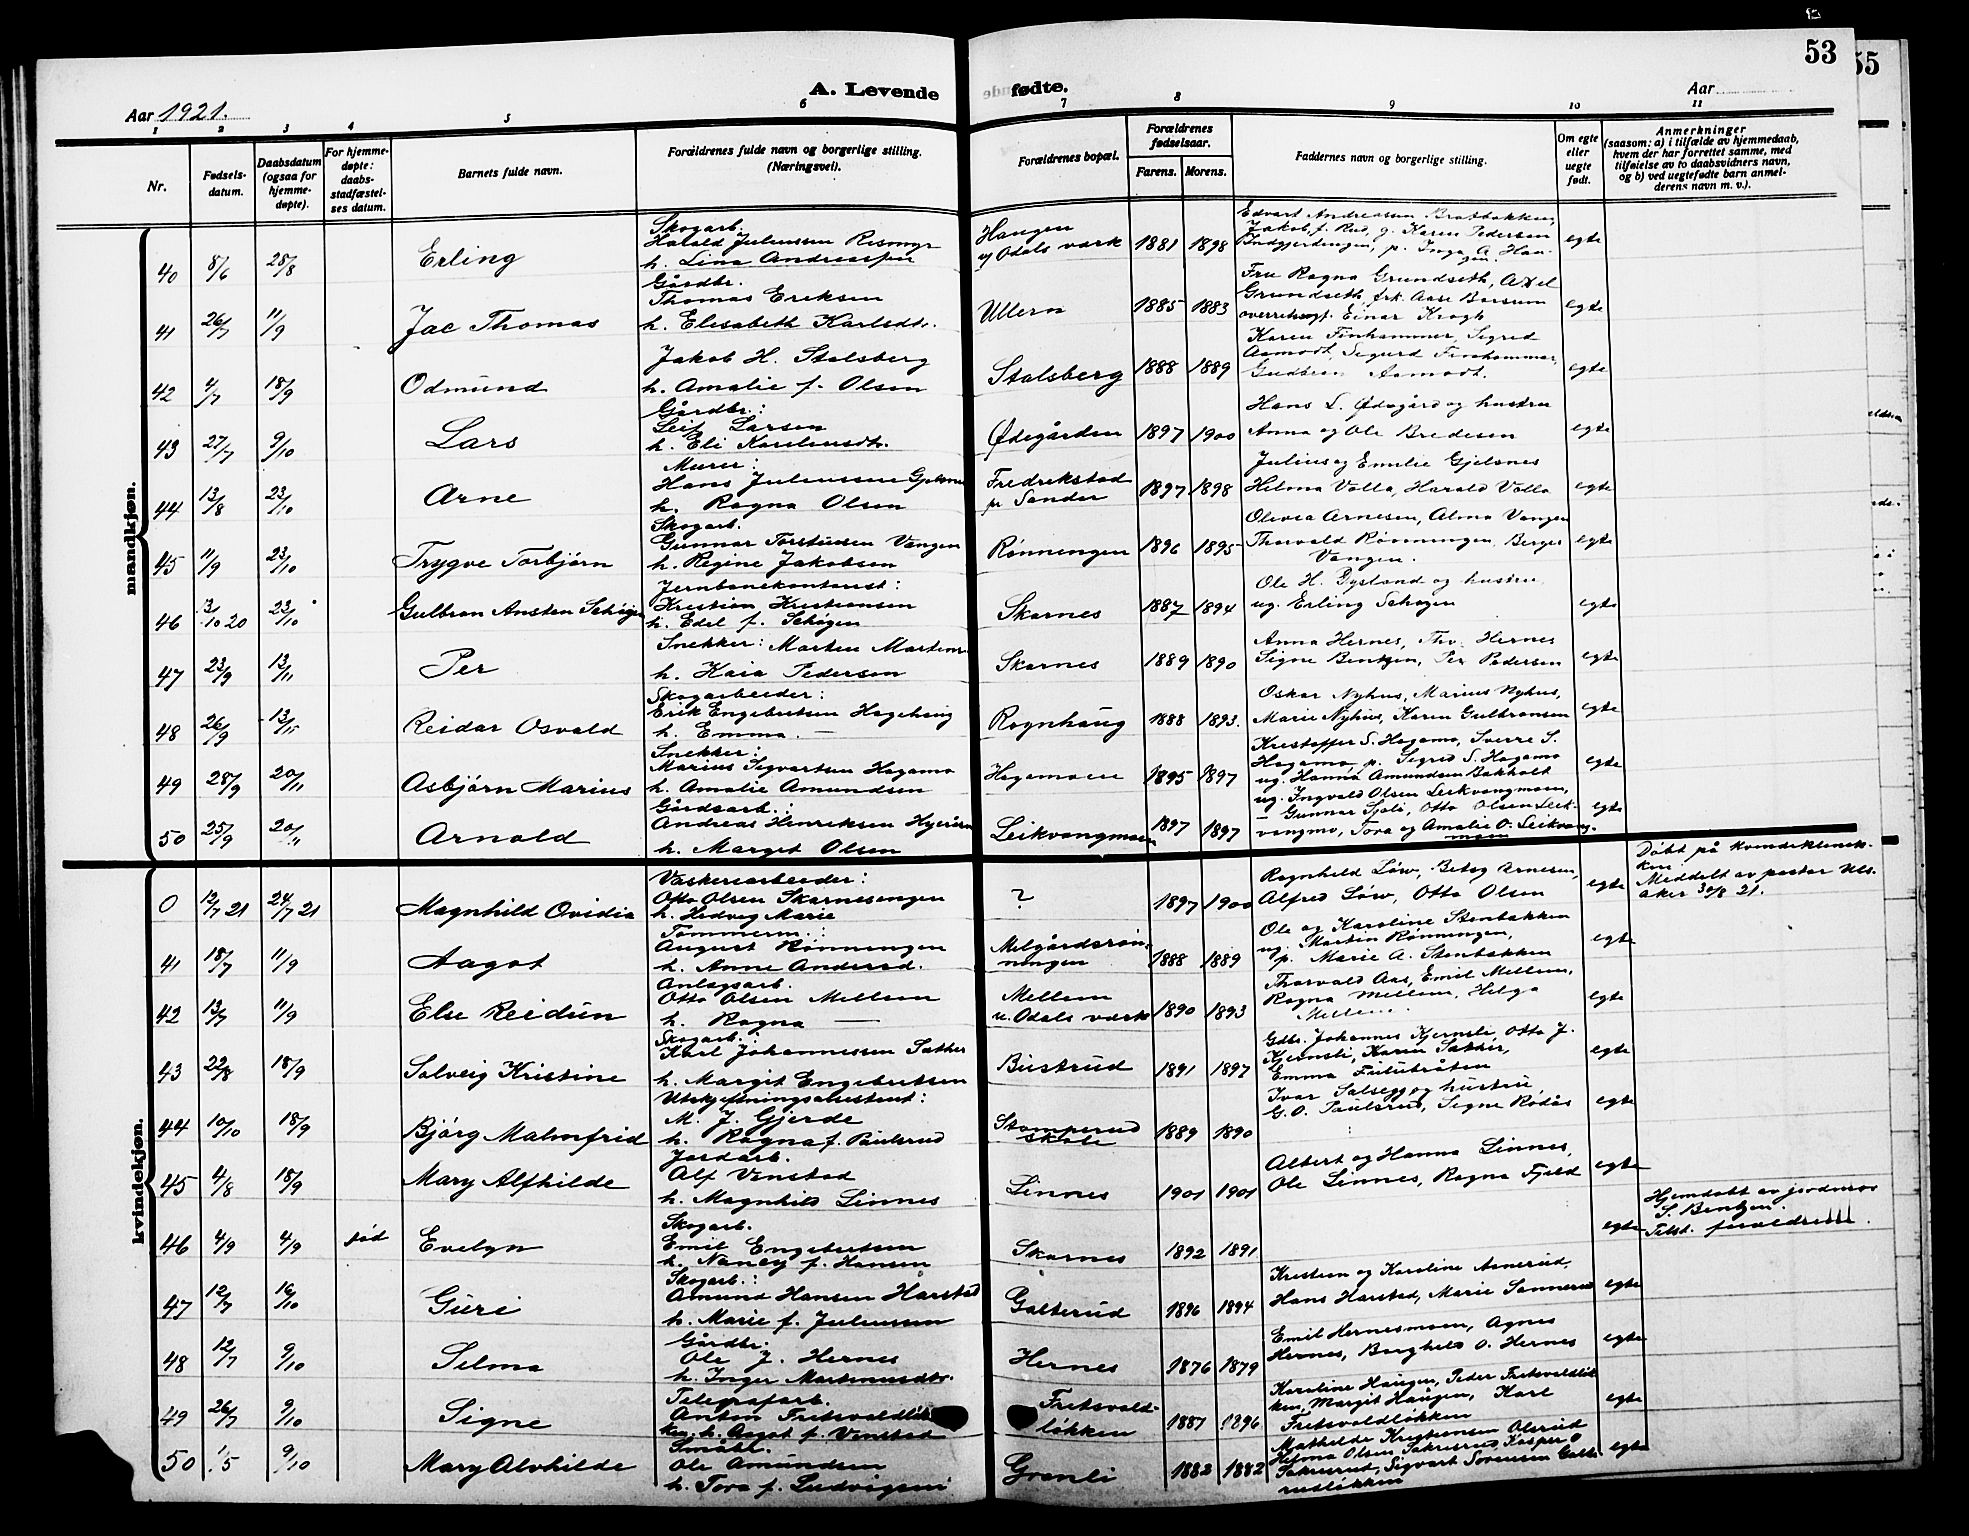 53
55
A. Levende fødte.
Aar 1921.
Aar
1 2 3 4 5 6 7 8 9 10 11
Nr.
Fødsels-
datum.
Daabsdatum
(ogsaa for
hjemme-
døpte).
For hjemme-
døpte:
daabs-
stadfæstel-
ses datum.
Barnets fulde navn.
Forældrenes fulde navn og borgerlige stilling.
(Næringsvei).
Forældrenes bopæl.
Forældrenes
fødselsaar.
Farens. Morens.
Faddernes navn og borgerlige stilling.
Om egte
eller
uegte
født.
Anmerkninger
(saasom: a) i tilfælde av hjemmedaab,
hvem der har forrettet samme, med
tilføielse av to daabsvidners navn,
og b) ved uegtefødte barn anmel-
derens navn m. v.).
mandkjøn.
40 8/6 28/8 Erling
Skogarb.
Harald Juliussen Rismyr
h. Lina Andreassen
Haugen
v/ Odalsværk 1881 1898
Edvart Andreassen Bratbakken,
Jakob f. Rud, g. Karen Pedersen
p. Inga A. Hau-
gen egte
41 26/7 11/9 Jac Thomas
Gårdbr.
Thomas Eriksen
h. Elisabeth Karlsdtr.
Ullern 1885 1883
Fru Ragna Grundseth, Axel
Grundseth, frk. Aase Borsum
overretssagf. Einar Krogh egte
42 4/7 18/9 Odmund
Jakob H. Stalsberg
h. Amalie f. Olsen
Stalsberg 1888 1889
Karen Finhammer, Sigrid
Aamodt, Sigurd Finhammer,
Gudbran Aamodt. egte
43 27/7 9/10 Lars
Gårdbr.:
Leif Larsen
h. Eli Kareliusdtr.
Ødegården 1897 1900
Hans L. Ødegård og hustru
Anna og Ole Bredesen egte
44 13/8 23/10 Arne
Murer:
Hans Juliussen Gjelsnes
h. Ragna Olsen
Fredrikstad
pr Sander 1897 1898
Julius og Emilie Gjelsnes
Helma Volla, Harald Volla egte
45 11/9 23/10 Trygve Torbjørn
Skogarb.
Gunnar Torstensen Vangen
h. Regine Jakobsen
Rønningen 1896 1895
Olivia Arnesen, Alma Vangen
Thorvald Rønningen, Berger
Vangen. egte
46 3/10 20 23/10 Gulbran Ansten Schøgen
Jernbanekontorist:
Kristian Kristiansen
h. Edel f. Schøgen
Skarnes 1887 1894
Ole H. Dystand og hustru,
ug. Erling Schøgen egte
47 23/9 13/11 Per
Snekker: Morten Mortens.
h. Kaia Pedersen
Skarnes 1889 1890
Anna Hernes, Thv. Hernes
Signe Bentzen, Per Pedersen egte
48 26/9 13/11 Reidar Osvald
Skogarbeider:
Erik Engebretsen Hagehaug
h. Emma —
Rognhaug 1888 1893.
Oskar Nyhus, Marius Nyhus,
Marie Nyhus, Karen Gulbransen egte
49 28/9 20/11 Asbjørn Marius
Snekker:
Marius Sigvartsen Hagamo
h. Amalie Amundsen
Hagamoen 1895 1897
Kristoffer S. Hagamo, Sverre S.
Hagamo, p. Sigrid S. Hagamo
ug. Hanna Amundsen Bakholt egte
50 25/9 20/11 Arnold
Gårdsarb.:
Andreas Henriksen
h. Margit Olsen
Leikvangmoen 1897 1897
ug. Ingvald Olsen Leikvangmoen,
— Gunnar Sjøli, Otto Olsen Leik-
vangmo, Tora og Amalie O. Leikvang-
moen egte
kvindekjøn.
0 12/7 21 24/7 21 Magnhild Ovidia
Væskeriarbeider:
Otto Olsen Skarnesengen
h. Hedvig Marie
? 1897 1900
Ragnhild Løw, Betsy Arnesen,
Alfred Løw, Otto Olsen egte
Døbt på kvindeklinik-
ken
Meddelt av pastor Uls-
aker 30/8 21.
41 18/7 11/9 Aagot
Tømmerm.:
August Rønningen
h. Anne Andersd.
Melgårdsrøn-
ningen 1888 1889
Ole og Karoline Stenbakken
ug. Martin Rønningen,
p. Marie A. Stenbakken egte
42 13/7 11/9 Else Reidun
Anlægsarb.
Otto Olsen Mellem
h. Ragna —
Mellem
v. Odals værk 1890 1893
Thorvald Aas, Emil Mellem,
Ragna Mellem, Helga
Mellem. egte
43 22/8 18/9 Solveig Kristine
Skogarb.:
Karl Johannessen Sæther
h. Margit Engebretsen
Bustrud 1891 1897
Gdbr. Johannes Kjernsli, Otto J.
Kjernsli, Karen Sæther,
Emma egte
44 10/10 18/9 Bjørg Malmfrid
Utskiftningsassistent:
M. J. Gjerde
h. Ragna f. Paulsrud
Stomperud
skole 1889 1890
Ivar Salsegg og hustru,
G. O. Paulsrud, Signe Rodås egte
45 4/8 18/9 Mary Alfhilde
Jordarb.
Alf Vinstad
h. Magnhild Linnes
Linnes 1901 1901
Albert og Hanna Linnes,
Ole Linnes, Ragna Fjeld egte
46 4/9 4/9 død Evelyn
Skogarb.
Emil Engebretsen
h. Nancy f. Hansen
Skarnes 1892 1891 egte
Hjemdøbt av jordmor
S. Bentzen.
Tilst. forældrene.
47 12/7 16/10 Guri
Skogarb.:
Amund Hansen Harstad
h. Marie f. Juliussen
Galterud 1896 1894
Kristian og Karoline Asnerud,
Hans Harstad, Marie Sannerud egte
48 12/7 9/10 Selma
Gårdbr.:
Ole J. Hernes
h. Inger Martinusdtr.
Hernes 1876 1879
Emil Hernesmoen, Agnes
Hernes, Borghild O. Hernes egte
49 26/7 9/10 Signe
Telegrafarb.
Anton Fritsvoldløk-
ken h. Aagot f. Vinstad
Fritsvold-
løkken 1887 1896
Karoline Haugen, Peder Fritsvoldløk-
ken, Margit Haugen, Karl
Fritsvoldløkken egte
50 1/5 9/10 Mary Alvhilde
Småbr.
Ole Amundsen
h. Tora f. Ludvigsen
Granli 1882 1882
Mathilde Kristiansen Olerud
Helma Olsen Sakrisrud Kasper O
Sakrisrud, Sigvart Sørensen Galte-
rudløkken egte